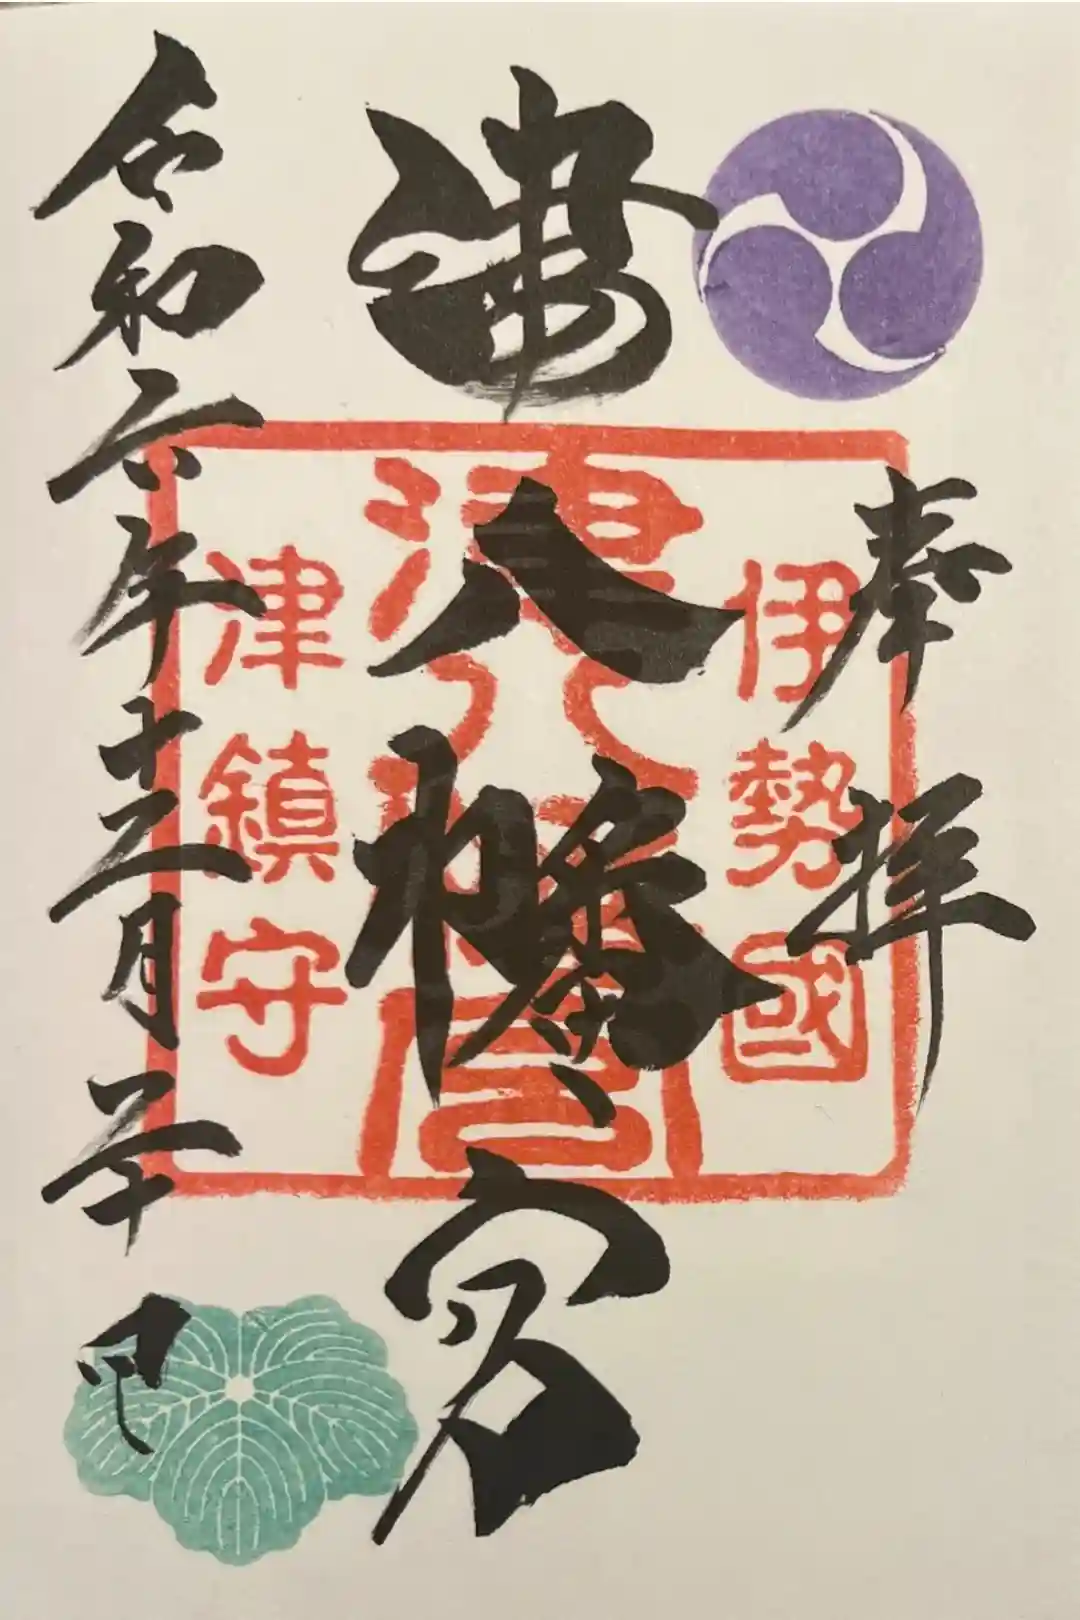 奉拝
津八幡宮
令和六年十二月二十日
伊勢國
津八幡宮
津鎮守